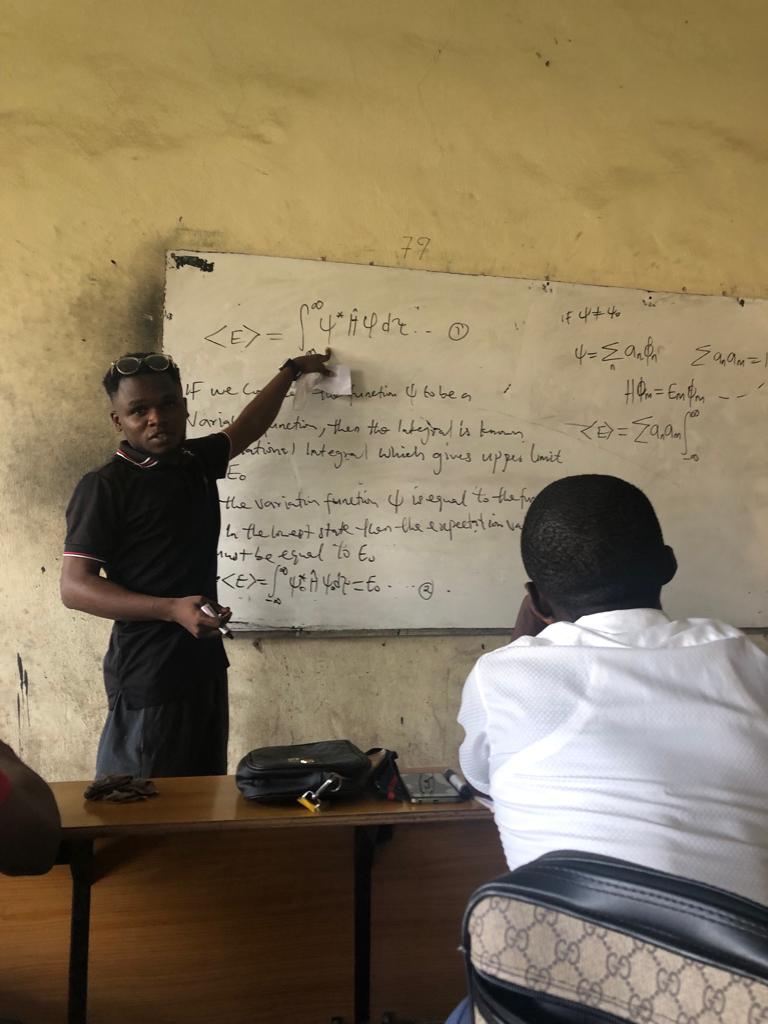 79
<E> = ∫_{-∞}^{∞} ψ* Ĥ ψ dτ ... ①
IF we the function ψ to be a
function, then the Integral is known
Integral which gives upper limit
E₀
the variation function ψ is equal to the
In the lowest state then the expectation
must be equal to E₀
<E> = ∫_{-∞}^{∞} ψ₀* Ĥ ψ₀ dτ = E₀ ... ②
if ψ ≠ ψ₀
ψ = Σ_n a_n φ_n Σ a_n a_m = 1
Hφ_m = E_m φ_m
<E> = Σ a_n a_m ∫_{-∞}^{∞}